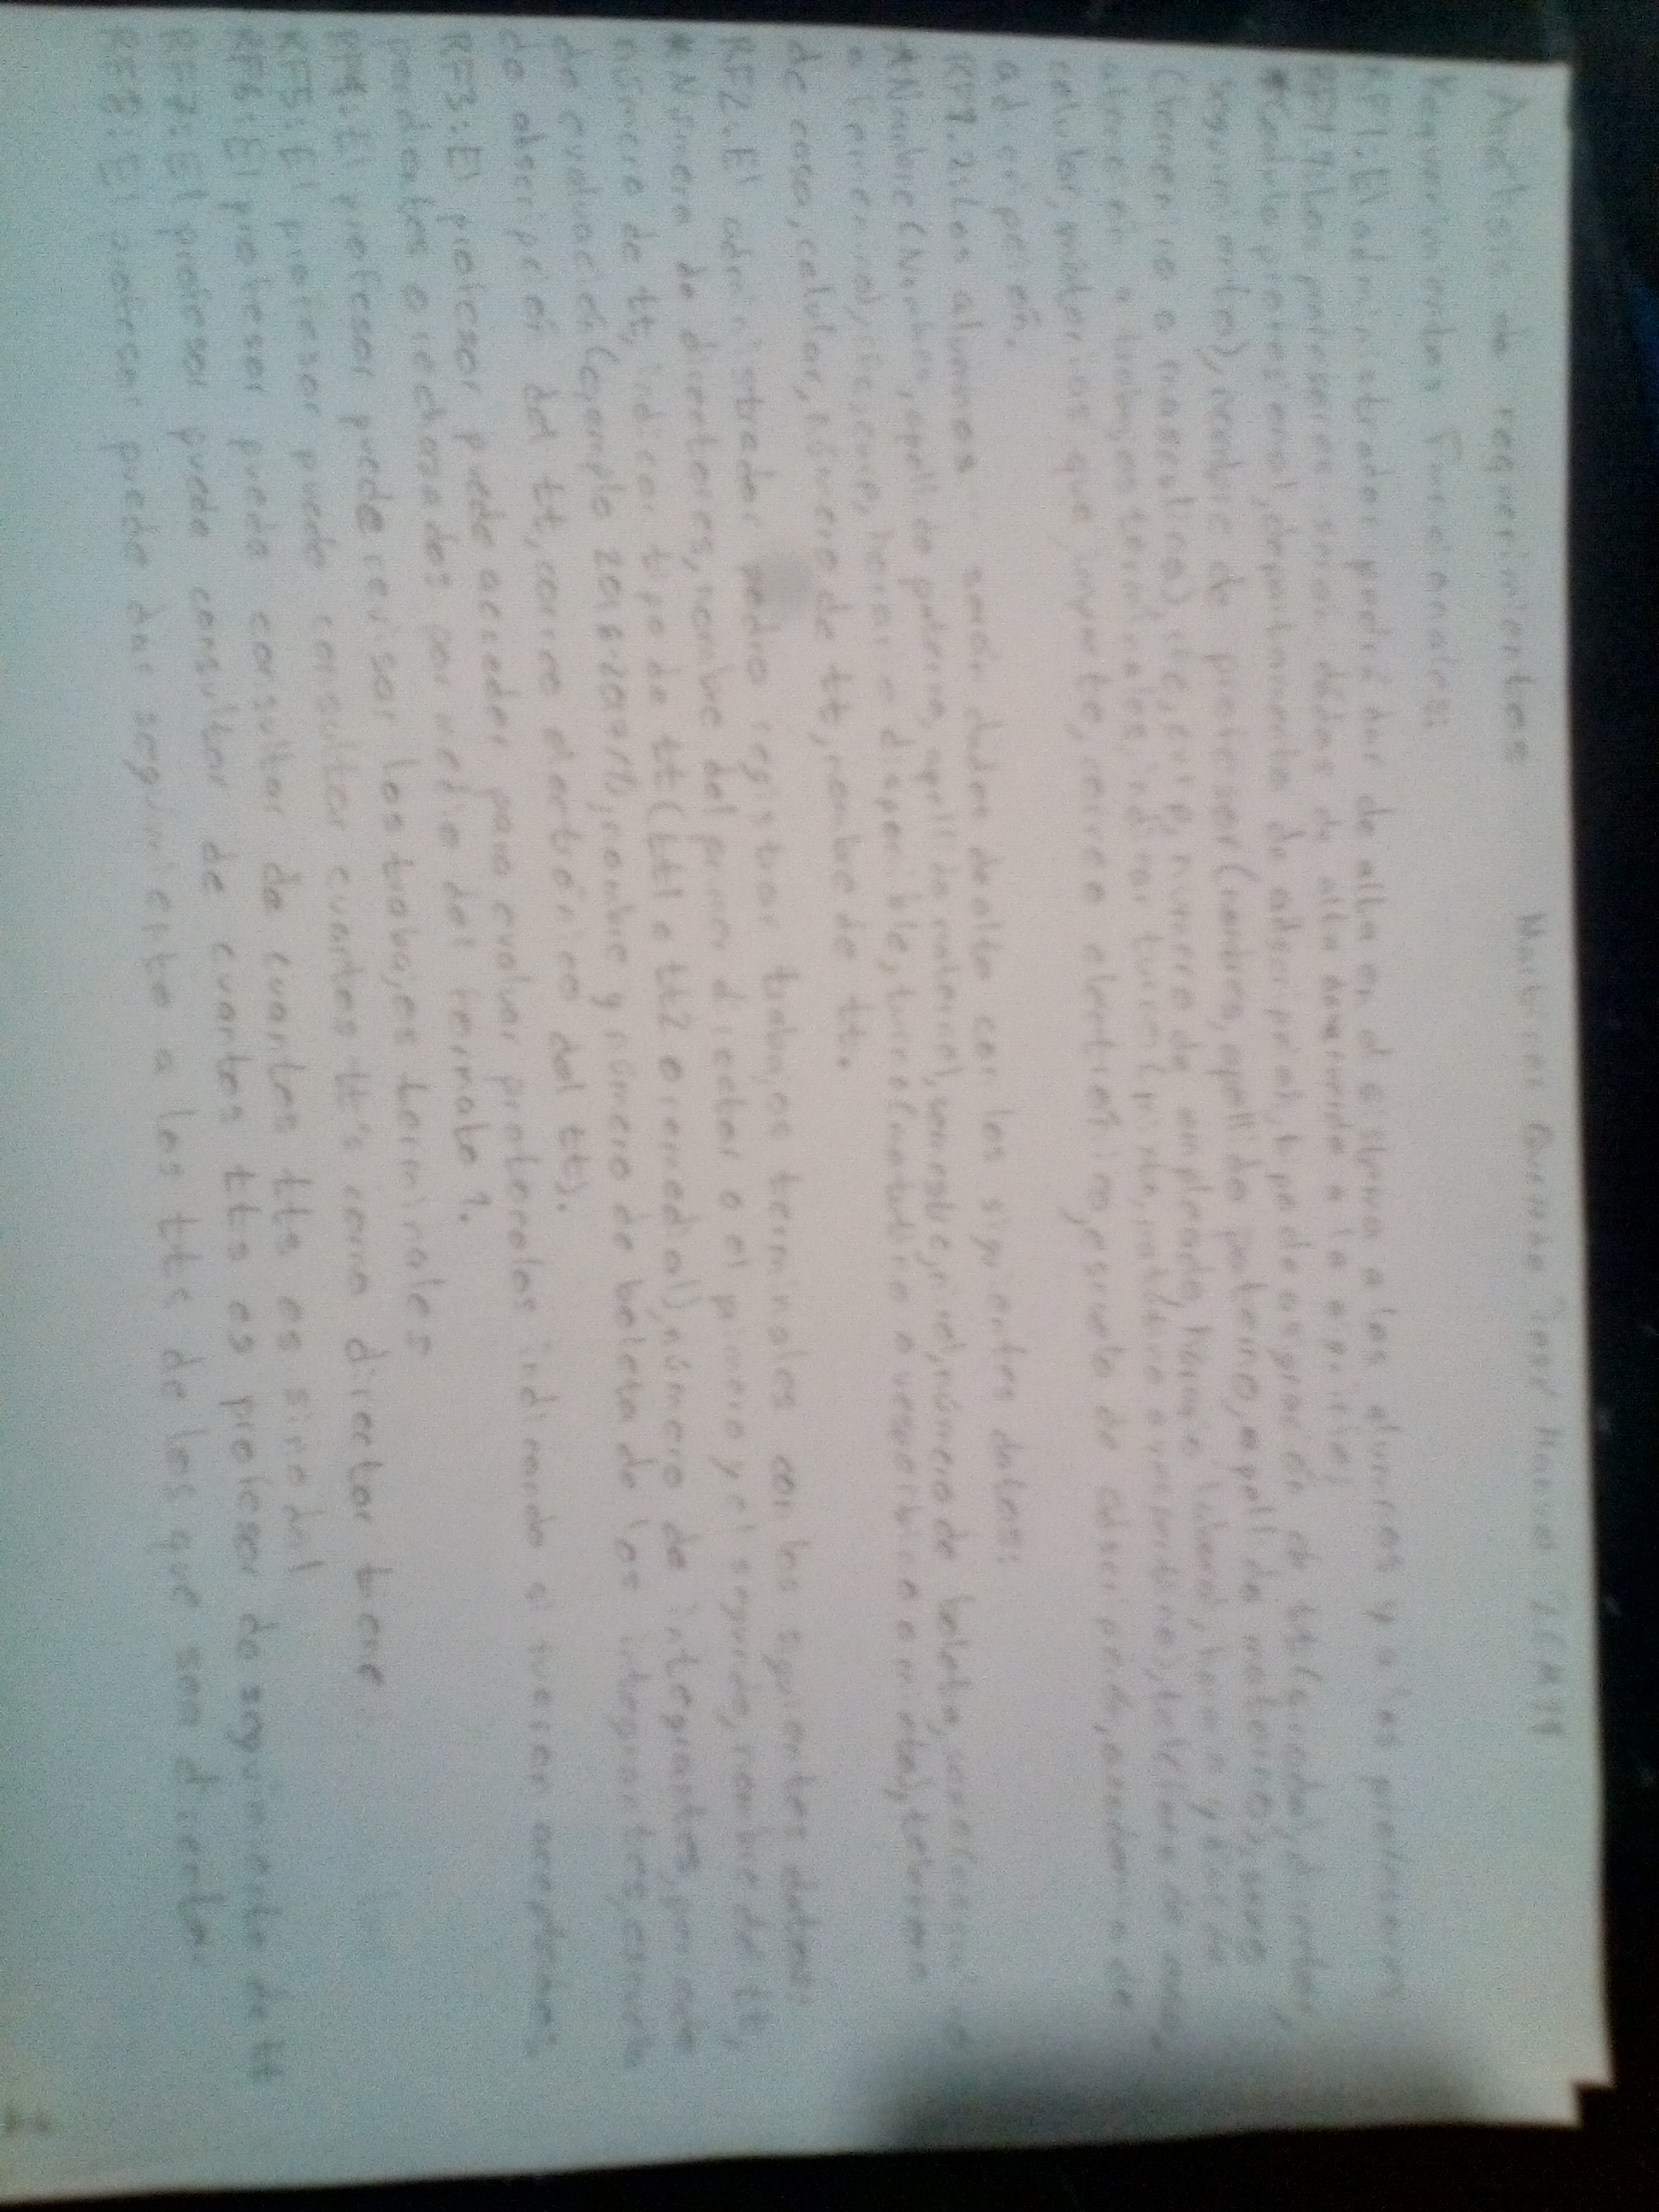 Análisis de requerimientos José Manuel 2CM11
Requerimientos Funcionales:
RF1: El administrador podrá dar de alta en el sistema a los alumnos y a los profesores
RF1.1: Los profesores serán dados de alta a lo
*Cedula profesional, departamento de adscripción, tipo de asignación de tt (sinodal, director,
seguimiento), nombre de profesor (nombres, apellido paterno, apellido materno), sexo
(femenino o masculino), rfc, curp, número de empleado, horario laboral, hora y de
atención a trabajos terminales, indicar turno (mixto, matutino o vespertino), teléfono de casa,
celular, materias que imparte, correo electronico, escuela de adscripción, academia de
adscripción.
RF1.2: Los alumnos serán dados de alta con los siguientes datos:
*Nombre (Nombres, apellido paterno, apellido materno), semestre, nivel, número de boleta, sexo
o femenino), rfc, curp, horario disponible, turno (matutino o vespertino o mixto), telefono
de casa, celular, número de tt, nombre de tt.
RF2: El administrador podra registrar trabajos terminales con los siguientes datos:
*Número de directores, nombre del primer director o el primero y el segundo, nombre del tt,
número de tt, indicar tipo de tt (tt1 o tt2 o remedial), número de integrantes, periodo
de evaluación (ejemplo nombre y número de boleta de los integrantes, escuela
de abscripción del tt, correo electrónico del tt).
RF3: El profesor puede acceder para evaluar protocolos indicando si fueron aceptados,
pendientes o rechazados por medio del formato 1.
RF4: El profesor puede revisar los trabajos terminales
RF5: El profesor puede consultar cuantos tt's como director tiene
RF6: El profesor puede consultar de cuantos tts es sinodal
RF7: El profesor puede consultar de cuantos tts es profesor de seguimiento de tt
RF8: El profesor puede dar seguimiento a los tts de los que son
1